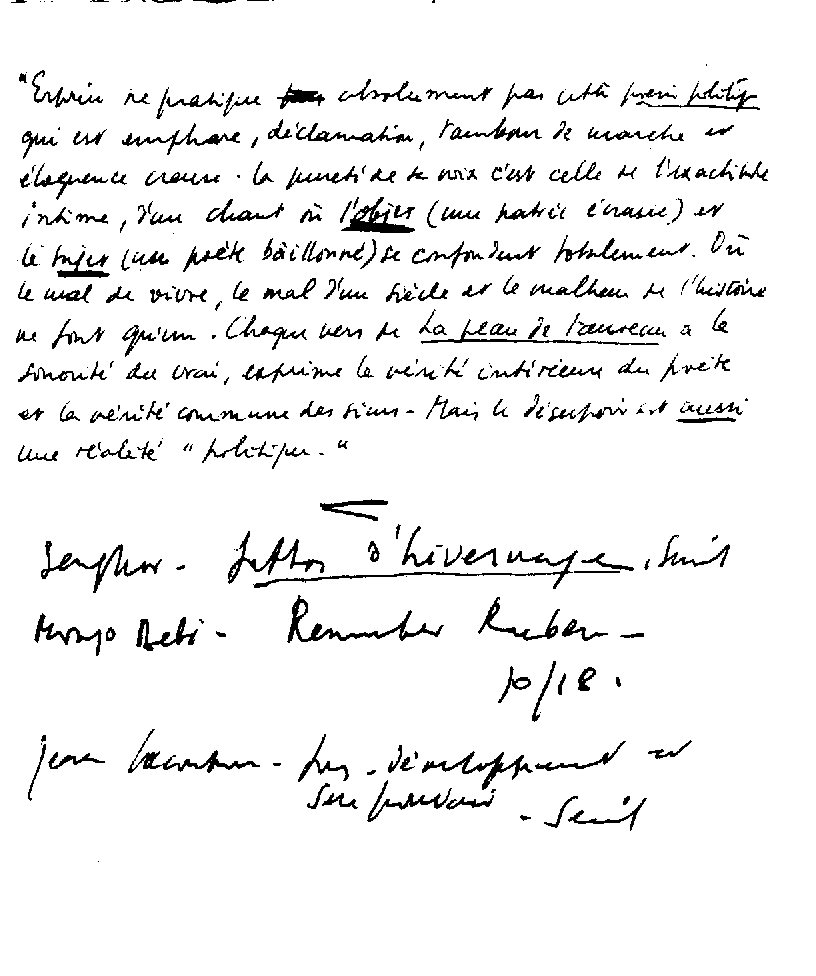 "Espriu ne pratique absolument pas cette poésie politiq
qui est emphase, déclamation, tambour de marche et
éloquence creuse. La pureté de sa voix c'est celle de l'exactitude
intime, d'un chant où l'objet (une patrie écrasée) et
le sujet (un poète bâillonné) se confondent totalement. Où
le mal de vivre, le mal d'un siècle et le malheur de l'histoire
ne font qu'un. Chaque vers de La peau de taureau a la
sonorité du vrai, exprime la vérité intérieure du poète
et la vérité commune des siens - Mais le désespoir est aussi
une réalité "politique."
Senghor - Lettres d'hivernage, Seuil
Mongo Beti - Remember Ruben -
10/18.
Jean Lacouture - développement et
pouvoir - Seuil